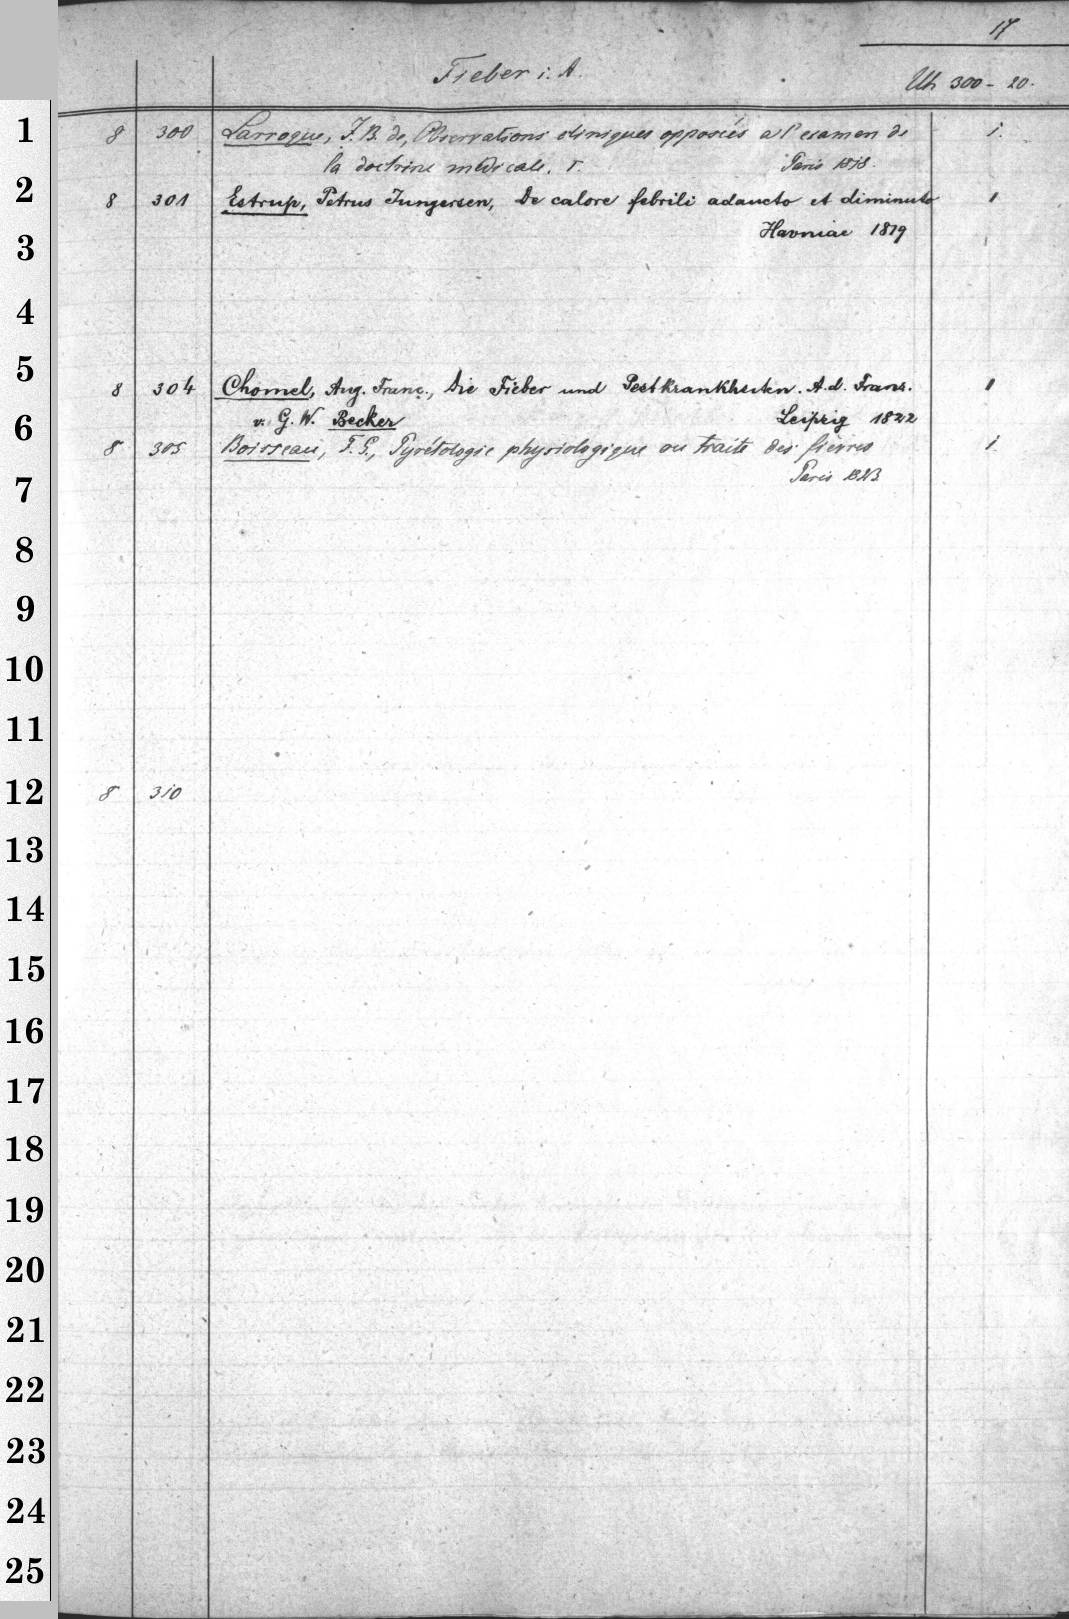 17
Fieber i. A.
Uh 300-20.
1 8 300 Larroque, J. B. de, Observations cliniques opposées a l'examen de 1.
la doctrine médicale. Paris 1818.
2 8 301 Estrup, Petrus Jungersen, De calore febrili adaucto et diminuto 1
3 Havniae 1819
4
5 8 304 Chomel, Aug. Franç., Die Fieber und Pestkrankheiten. A. d. Franz. 1
6 v. G. W. Becker Leipzig 1822
8 305 Boisseau, F. G., Pyrétologie physiologique ou traité des fièvres 1.
7 Paris 1823.
8
9
10
11
12 8 310
13
14
15
16
17
18
19
20
21
22
23
24
25